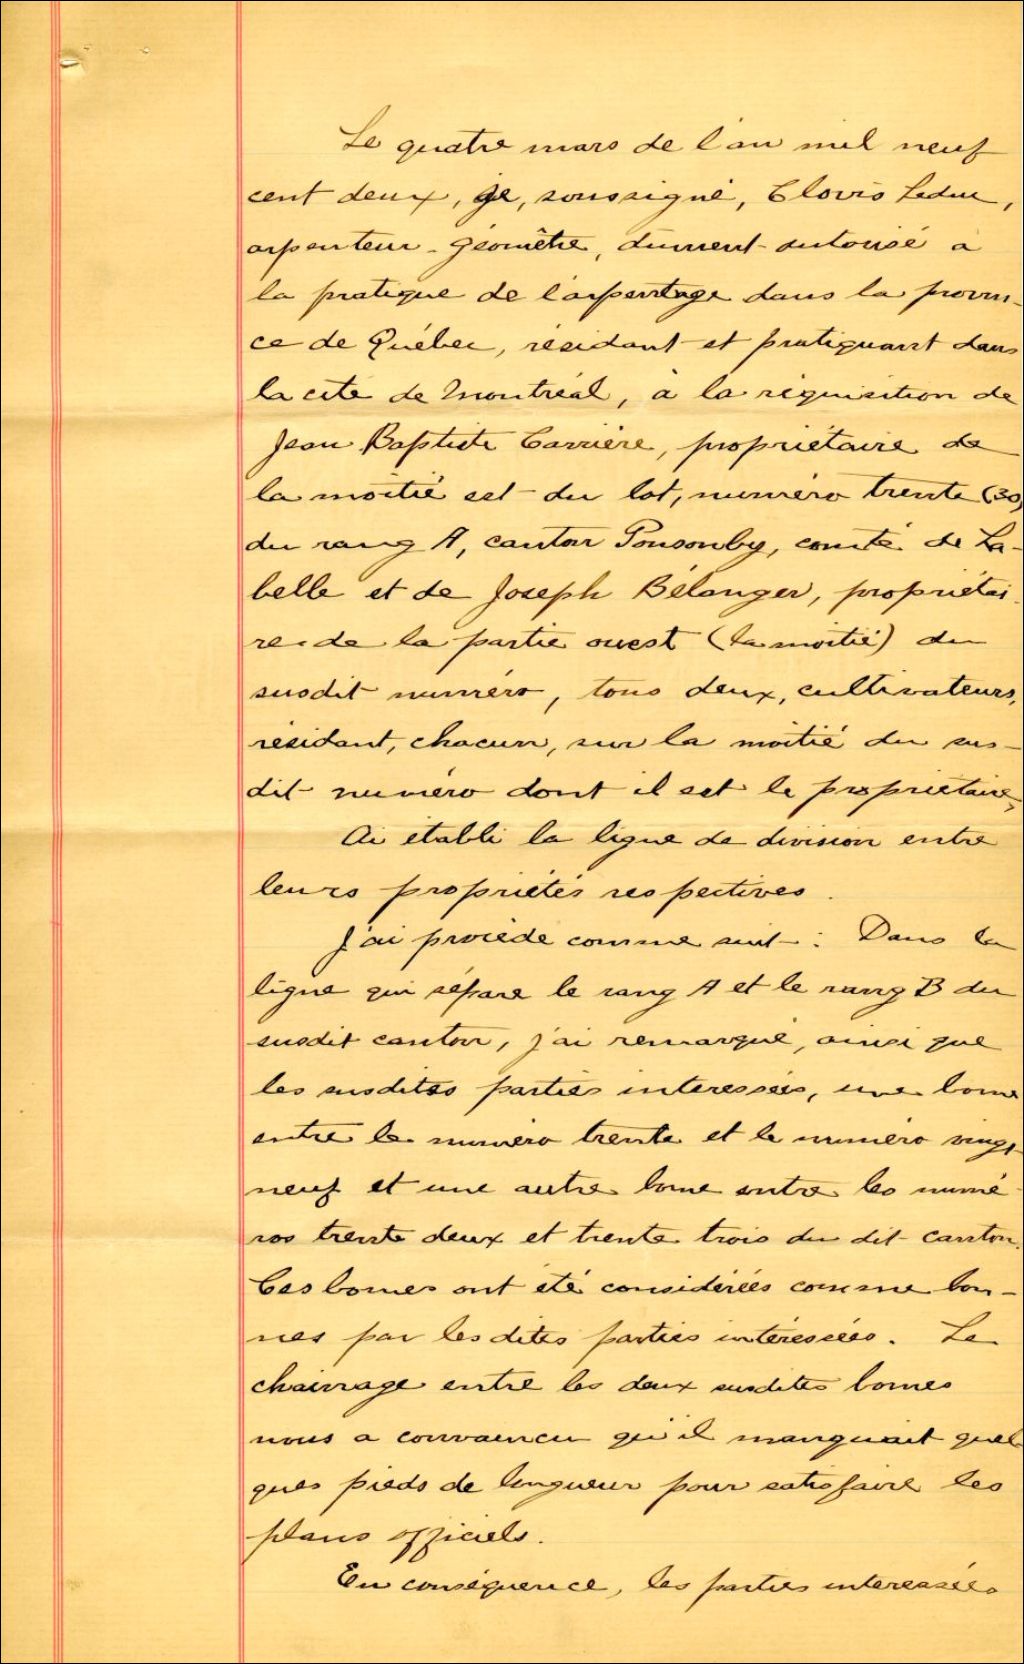 Le quatre mars de l'an mil neuf
cent deux, je, soussigné, Clovis Leduc,
arpenteur-géomètre, dûment autorisé à
la pratique de l'arpentage dans la provin-
ce de Québec, résidant et pratiquant dans
la cité de Montréal, à la réquisition de
Jean Baptiste Carrière, propriétaire de
la moitié est du lot, numéro trente (30)
du rang A, canton Ponsonby, comté de La-
belle et de Joseph Bélanger, propriétai-
re de la partie ouest (la moitié) du
susdit numéro, tous deux, cultivateurs,
résidant, chacun, sur la moitié du sus-
dit numéro dont il est le propriétaire,
Ai établi la ligne de division entre
leurs propriétés respectives.
J'ai procédé comme suit : Dans la
ligne qui sépare le rang A et le rang B du
susdit canton, j'ai remarqué, ainsi que
les susdites parties intéressées, une borne
entre le numéro trente et le numéro vingt
neuf et une autre borne entre les numé-
ros trente deux et trente trois du dit canton.
Ces bornes ont été considérées comme bon-
nes par les dites parties intéressées. Le
chainage entre les deux susdites bornes
nous a convaincu qu'il manquait quel
ques pieds de longueur pour satisfaire les
plans officiels.
En conséquence, les parties intéressées